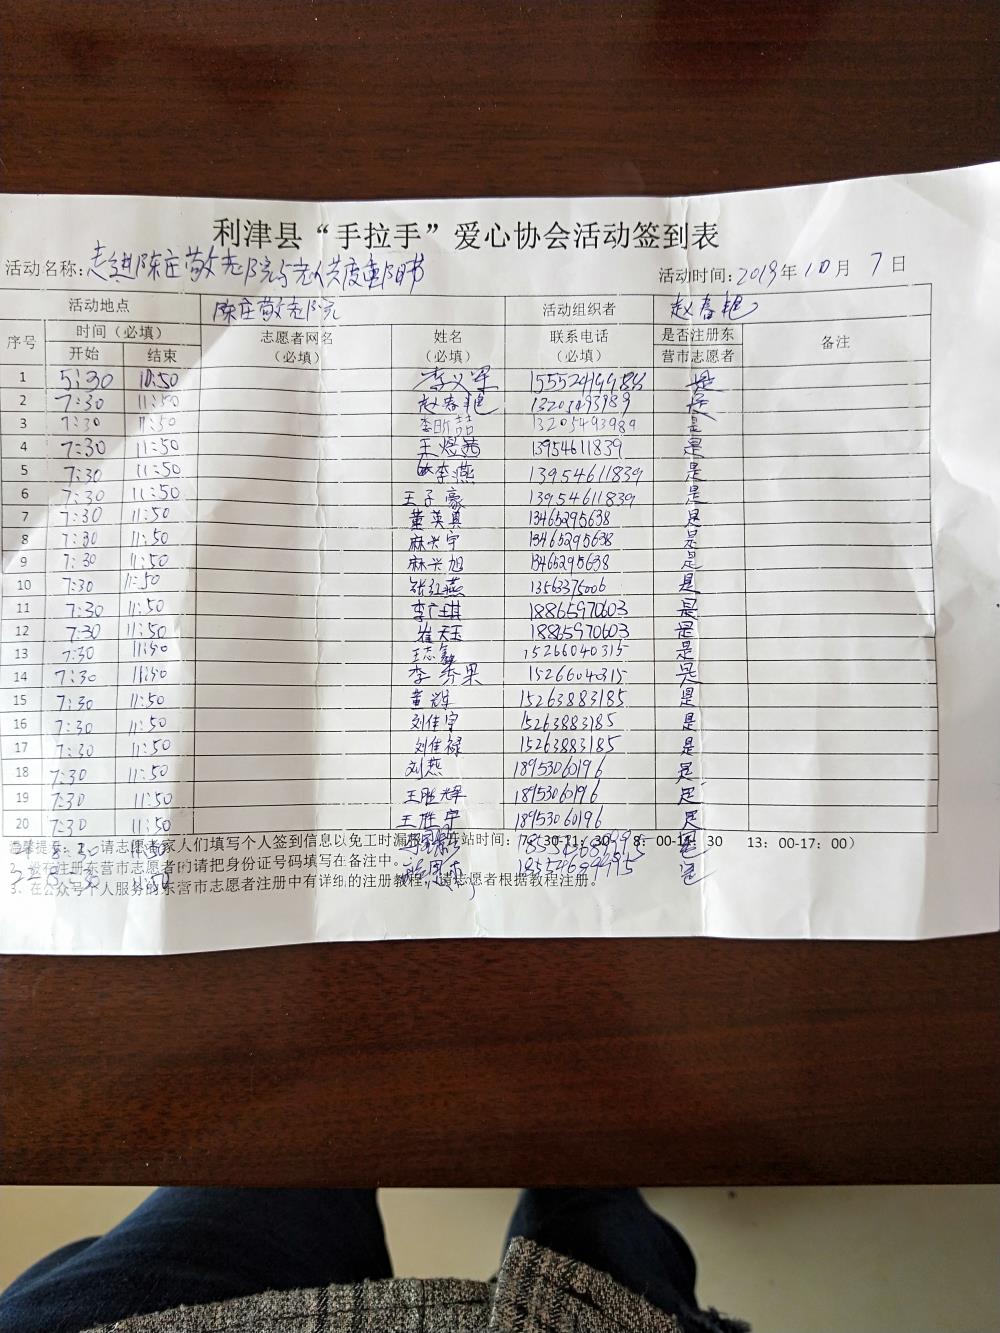 利津县“手拉手”爱心协会活动签到表
活动名称：走进陈庄敬老院与老人共度重阳节 活动时间：2019年10月7日
活动地点 陈庄敬老院 活动组织者 赵春艳
序号 时间（必填） 志愿者网名 姓名 联系电话 是否注册东 备注
开始 结束 （必填） （必填） （必填） 营市志愿者
1 5:30 10:50 李义军 是
2 7:30 11:50 赵春艳 13205493989 是
3 7:30 11:50 李昕喆 13205493989 是
4 7:30 11:50 王煜茜 13954611839 是
5 7:30 11:50 李燕 13954611839 是
6 7:30 11:50 王子豪 13954611839 是
7 7:30 11:50 董英真 13465295638 是
8 7:30 11:50 麻兴宇 13465295638 是
9 7:30 11:50 麻兴旭 13465295638 是
10 7:30 11:50 张红燕 13563375006 是
11 7:30 11:50 李 琪 18865970603 是
12 7:30 11:50 崔天玉 18865970603 是
13 7:30 11:50 王志毅 15266040315 是
14 7:30 11:50 李秀果 15266040315 是
15 7:30 11:50 董辉 15263883185 是
16 7:30 11:50 刘佳宇 15263883185 是
17 7:30 11:50 刘佳禄 15263883185 是
18 7:30 11:50 刘燕 18953060196 是
19 7:30 11:50 王胜辉 18953060196 是
20 7:30 11:50 王胜宁 18953060196 是
温馨提示：1、请志愿者家人们填写个人签到信息以免工时漏 站时间：7：30-11：30 8：00-11：30 13：00-17：00）
2、没有注册东营市志愿者的请把身份证号码填写在备注中。
3、在公众号个人服务的东营市志愿者注册中有详细的注册教程，请志愿者根据教程注册。